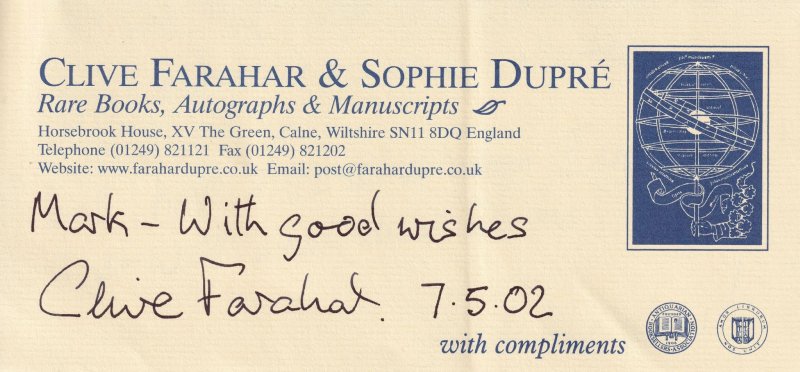 CLIVE FARAHAR & SOPHIE DUPRÉ
Rare Books, Autographs & Manuscripts
Horsebrook House, XV The Green, Calne, Wiltshire SN11 8DQ England
Telephone (01249) 821121 Fax (01249) 821202
Website: www.farahardupre.co.uk Email: post@farahardupre.co.uk
Mark - With good wishes
Clive Farahar. 7.5.02
with compliments